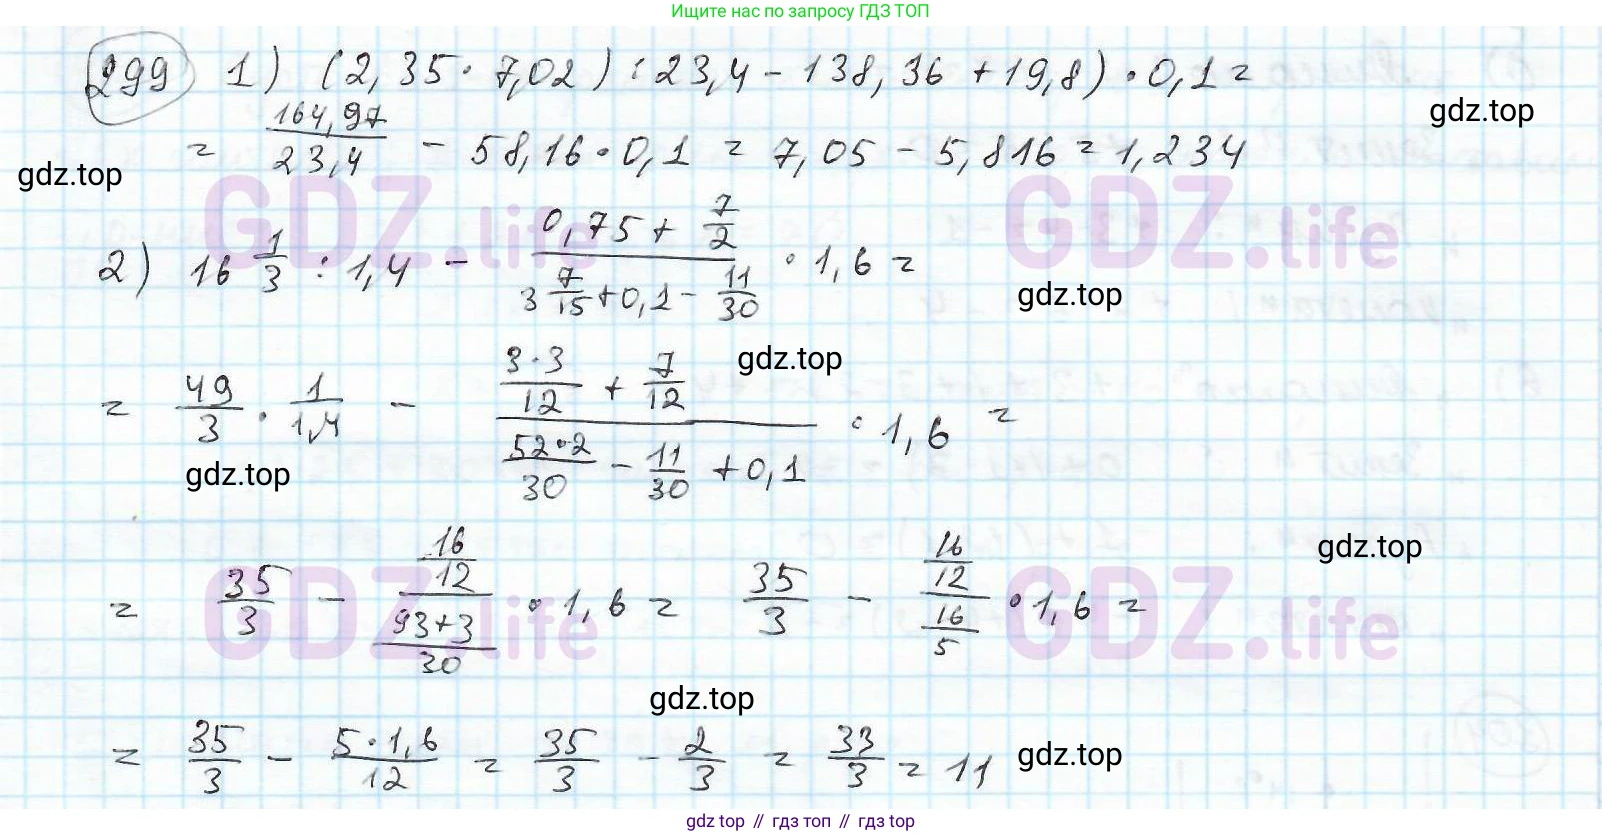 Ищите нас по запросу ГДЗ ТОП
299 1) (2,35 · 7,02) : 23,4 - 138,36 + 19,8) · 0,1 =
= 164,97/23,4 - 58,16 · 0,1 = 7,05 - 5,816 = 1,234
gdz.top
gdz.top
GDZ.life
GDZ.life
2) 16 1/3 : 1,4 - (0,75 + 7/2)/(3 7/15 + 0,1 - 11/30) · 1,6 =
gdz.top
gdz.top
= 49/3 · 1/1,4 - (3·3/12 + 7/12)/(52·2/30 - 11/30 + 0,1) · 1,6 =
gdz.top
gdz.top
GDZ.life
GDZ.life
= 35/3 - (16/12)/((93+3)/30) · 1,6 = 35/3 - (16/12)/(16/5) · 1,6 =
gdz.top
= 35/3 - 5·1,6/12 = 35/3 - 2/3 = 33/3 = 11
gdz.top
gdz top // гдз топ // gdz top